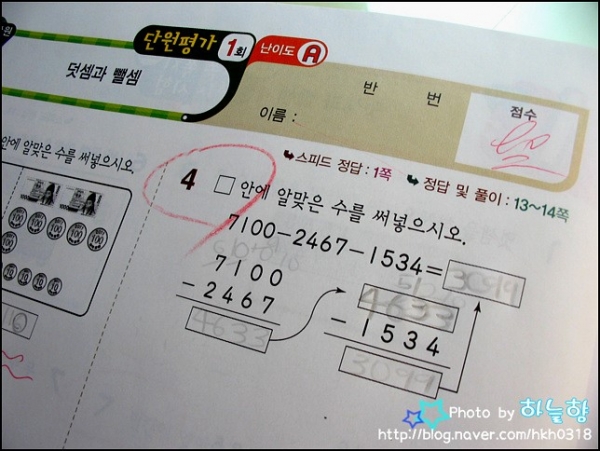 단원평가 1회 난이도 A
덧셈과 뺄셈
반 번
이름 :
점수
스피드 정답 : 1쪽
정답 및 풀이 : 13~14쪽
안에 알맞은 수를 써넣으시오.
100 100 100 100 100
10 10 10 10 10
4 □ 안에 알맞은 수를 써넣으시오.
7100-2467-1534= 3099
7100
- 2467
4633
4633
- 1534
3099
Photo by 하늘향
http://blog.naver.com/hkh0318